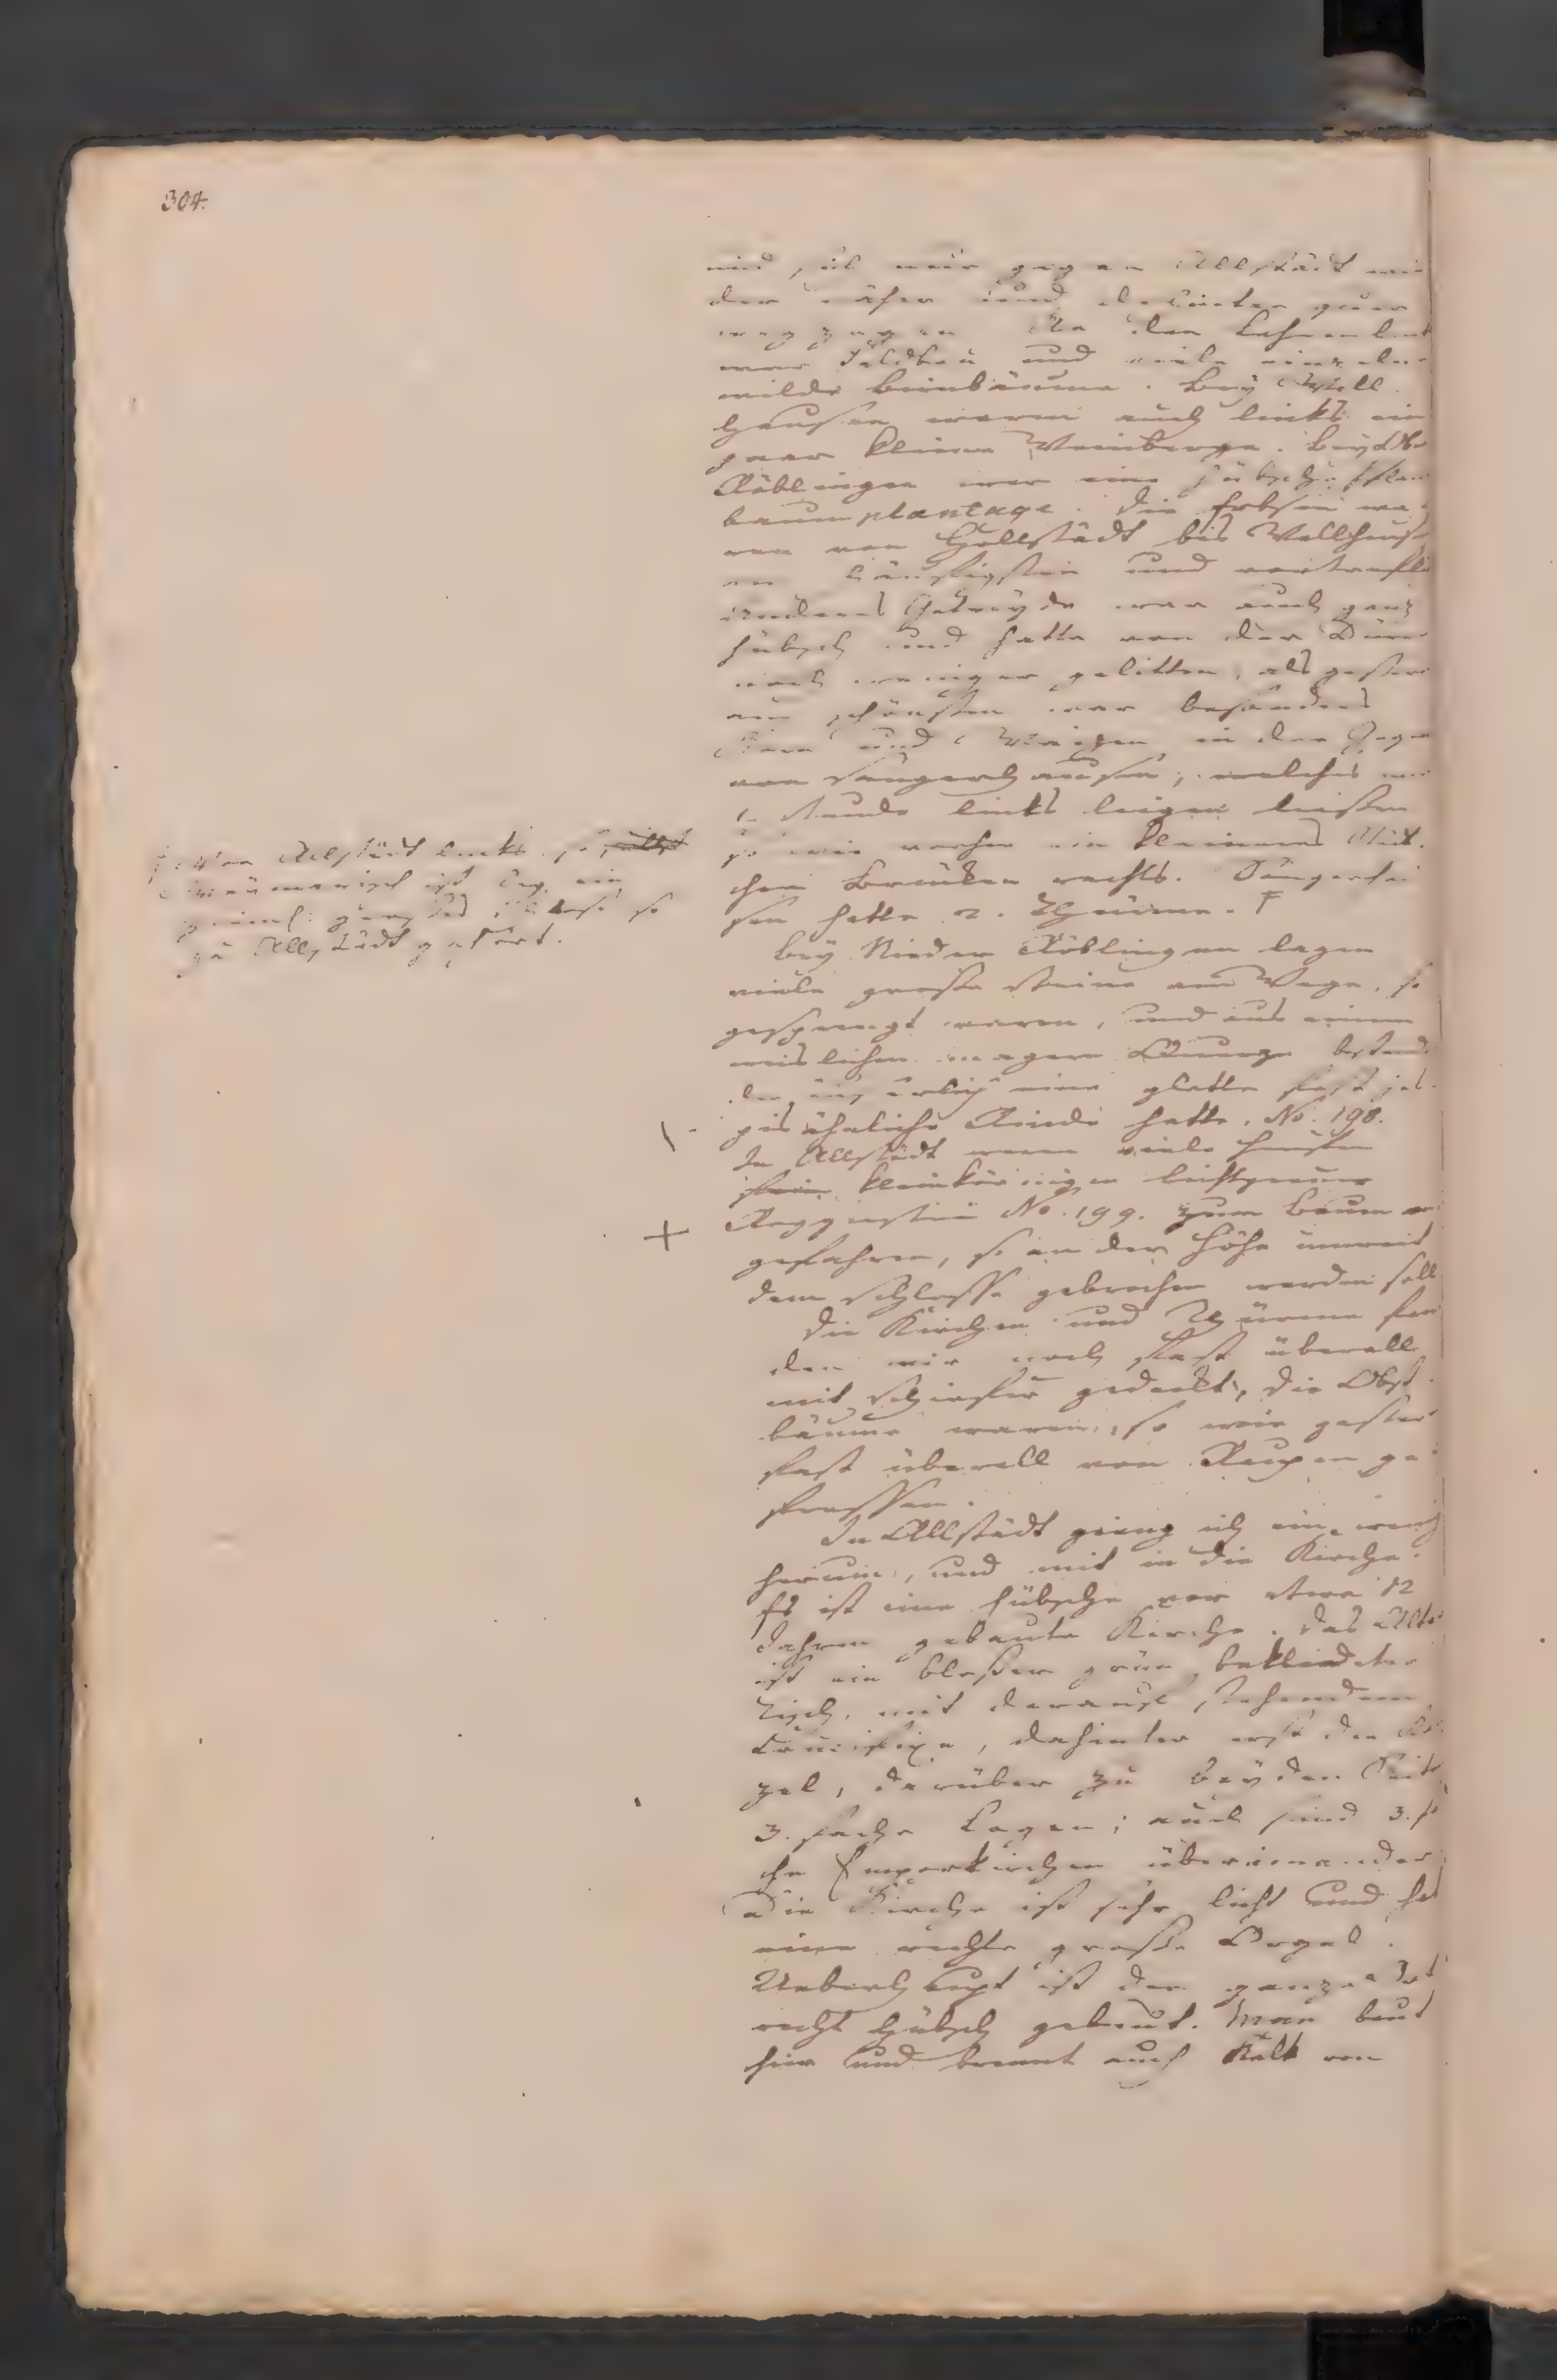 304.
und sich nur gegen Allstädt wie
der näher und darunter quer
weg zogen. An den Lehnen
war Feldbau und viele einzelne
wilde Birnbäume. Bey Well
hausen waren auch lincks ein
paar kleine Weinberge. Bey Ober
Röblingen war eine hübsche
baum plantage. Die Erbsen wa
ren von Hollstädt bis Wallhausen
am häufigsten und vortrefli
anderes Getreyde war auch ganz
hübsch und hatte von der Dürre
noch weniger gelitten, als gestern
am schönsten war besonders
Korn und Waizen in der Gegend
von Sangerhausen, welches wir
Stunde lincks liegen liesen
so wie vorher ein kleineres Städt
chen Brücken rechts. Sangerhau
sen hatte 2. Thürme. Ŧ
Ŧ Von Allstädt lincks
Weimarisch ist
Schloß so
zu Allstädt gehört.
Bey Nieder Röblingen lagen
viele große Steine am Wege, so
gesprengt waren, und aus einem
weislichen magern Quarze bestand
der äuserlich eine glatte fast jas
pisähnliche Rinde hatte. No. 198.
In Allstädt waren viele Fuhren
klein körnigen lichtgrauen
+ Roggenstein No. 199. zum Bauen an
gefahren, so an der Höhe unweit
dem Schlosse gebrochen werden soll
Die Kirchen und Thürme fan
den wir noch fast überall
mit Schiefer gedeckt, die Obst
bäume waren, so wie gestern
fast überall von Raupen ge
fressen.
In Allstädt gieng ich ein wenig
herum, und mit in die Kirche.
Es ist eine hübsche vor etwa 12
Jahren gebaute Kirche. Das Altar
ist ein bloßer grün bekleideter
Tisch, mit darauf stehendem
Crucifixe, dahinter erst die Kan
zel, darüber zu beyden Seiten
3. fache Logen; auch sind 3. fa
che Emporkirchen übereinander
Die Kirche ist sehr licht und hat
eine rechte große Orgel.
Ueberhaupt ist der ganze Ort
recht hübsch gebaut. Man baut
hier und brennt auch Kalk von